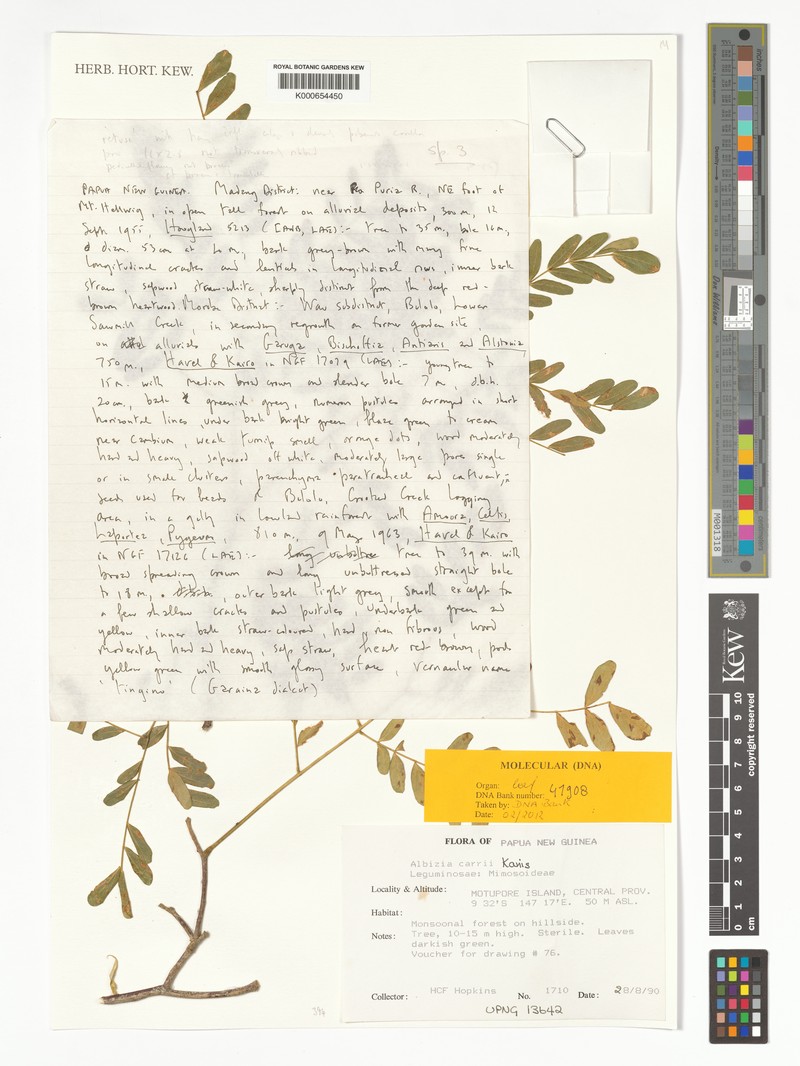 HERB. HORT. KEW.
ROYAL BOTANIC GARDENS KEW
K000654450
sp 3
PAPUA NEW GUINEA. Madang District: near Puria R., NE foot of
Mt. Hellwig, in open tall forest on alluvial deposits, 300 m, 12
Sept. 1955, Hoogland 5213 (CANB, LAE):- tree to 35 m, bole 16 m,
diam. 53 cm at 2 m, bark grey-brown with many fine
longitudinal cracks and lenticels in longitudinal rows, inner bark
straw, sapwood straw-white, sharply distinct from the deep red-
brown heartwood. Morobe District:- Wau subdistrict, Bulolo, Lower
Sawmill Creek, in secondary regrowth on former garden site,
on alluvials with Garuga, Bischoffia, Antiaris and Alstonia
750 m., Havel & Kairo in NGF 17079 (LAE):- young tree to
15 m. with medium broad crown and slender bole 7 m, d.b.h.
20 cm, bark greenish grey, numerous pustules arranged in short
horizontal lines, under bark bright green, blaze green to cream
near cambium, weak turnip smell, orange dots, wood moderately
hard and heavy, sapwood off white, moderately large pores single
or in small clusters, parenchyma paratracheal and confluent;
seeds used for beads Bulolo, Crooked Creek Logging
area, in a gully in lowland rainforest with Amoora, Celtis,
Laportea, Pygeum, 810 m, 9 May 1963, Havel & Kairo
in NGF 17126 (LAE):- tree to 39 m. with
broad spreading crown and long unbuttressed straight bole
to 18 m, outer bark light grey, smooth except for
a few shallow cracks and pustules, underbark green and
yellow, inner bark straw-coloured, hard, non fibrous, wood
moderately hard and heavy, sap straw, heart red brown, pods
yellow green with smooth glossy surface, vernacular name
"tingino" (Garaina dialect)
MOLECULAR (DNA)
Organ: leaf
DNA Bank number: 47908
Taken by: DNA Bank
Date: 02/2012
FLORA OF PAPUA NEW GUINEA
Albizia carrii Kanis
Leguminosae: Mimosoideae
Locality & Altitude: MOTUPORE ISLAND, CENTRAL PROV.
9 32'S 147 17'E. 50 M ASL.
Habitat: Monsoonal forest on hillside.
Notes: Tree, 10-15 m high. Sterile. Leaves
darkish green.
Voucher for drawing # 76.
Collector: HCF Hopkins No. 1710 Date: 28/8/90
UPNG 13642
M001318
Kew
copyright reserved
0 1 2 3 4 5 6 7 8 9 10
cm